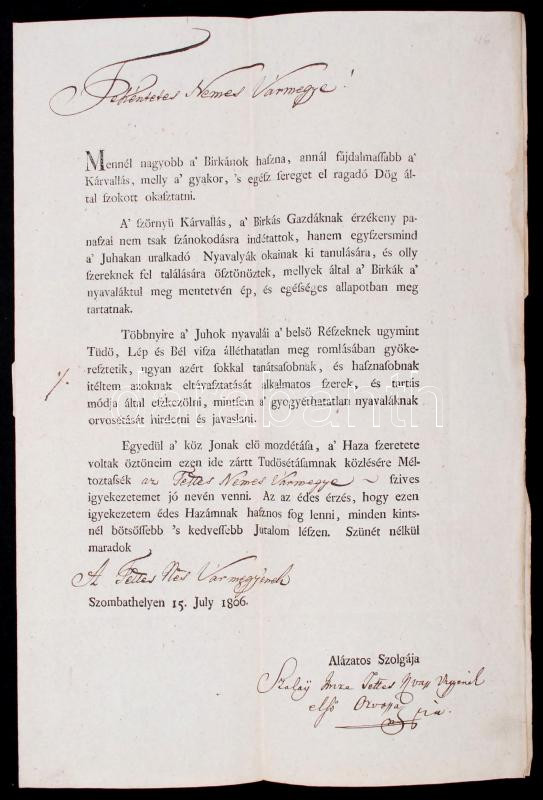 46
Tekéntetes Nemes Vármegye!
Mennél nagyobb a' Birkánok haſzna, annál fájdalmaſſabb a'
Kárvallás, melly a' gyakor, 's egéſz ſereget el ragadó Dög ál-
tal ſzokott okaſztatni.
A' ſzörnyü Kárvallás, a' Birkás Gazdáknak érzékeny pa-
naſzai nem tsak ſzánokodásra indétattok, hanem egyſzersmind
a' Juhakan uralkadó Nyavalyák okainak ki tanulására, és olly
ſzereknek fel találására öſztönöztek, mellyek által a' Birkák a'
nyavaláktul meg mentetvén ép, és egéſséges allapotban meg
tartatnak.
Többnyire a' Juhok nyavalái a' belsö Réſzeknek ugymint
Tüdö, Lép és Bél viſza álléthatlan meg romlásában gyöke-
reſztetik, ugyan azért ſokkal tanátsaſobnak, és haſznaſobnak
itéltem azoknak eltávaſztatását alkalmatos ſzerek, és tartás
módja által eſzkezölni, mintſem a' gyogyéthatatlan nyavaláknak
orvosétását hirdetni és javaslani.
Egyedül a' köz Jonak elö mozdétáſa, a' Haza ſzeretete
voltak öztöneim ezen ide zártt Tudósétásamnak közlésére Mél-
toztaſsék az Tettes Nemes Vármegye ſzives
igyekezetemet jó nevén venni. Az az édes érzés, hogy ezen
igyekezetem édes Hazámnak haſznos fog lenni, minden kints-
nél bötsöſſebb 's kedveſſebb Jutalom léſzen. Szünét nélkül
maradok
A Tettes Nes Varmegyének
Szombathelyen 15. July 1806.
Alázatos Szolgája
Szalay Imre Tettes
első Orvossa